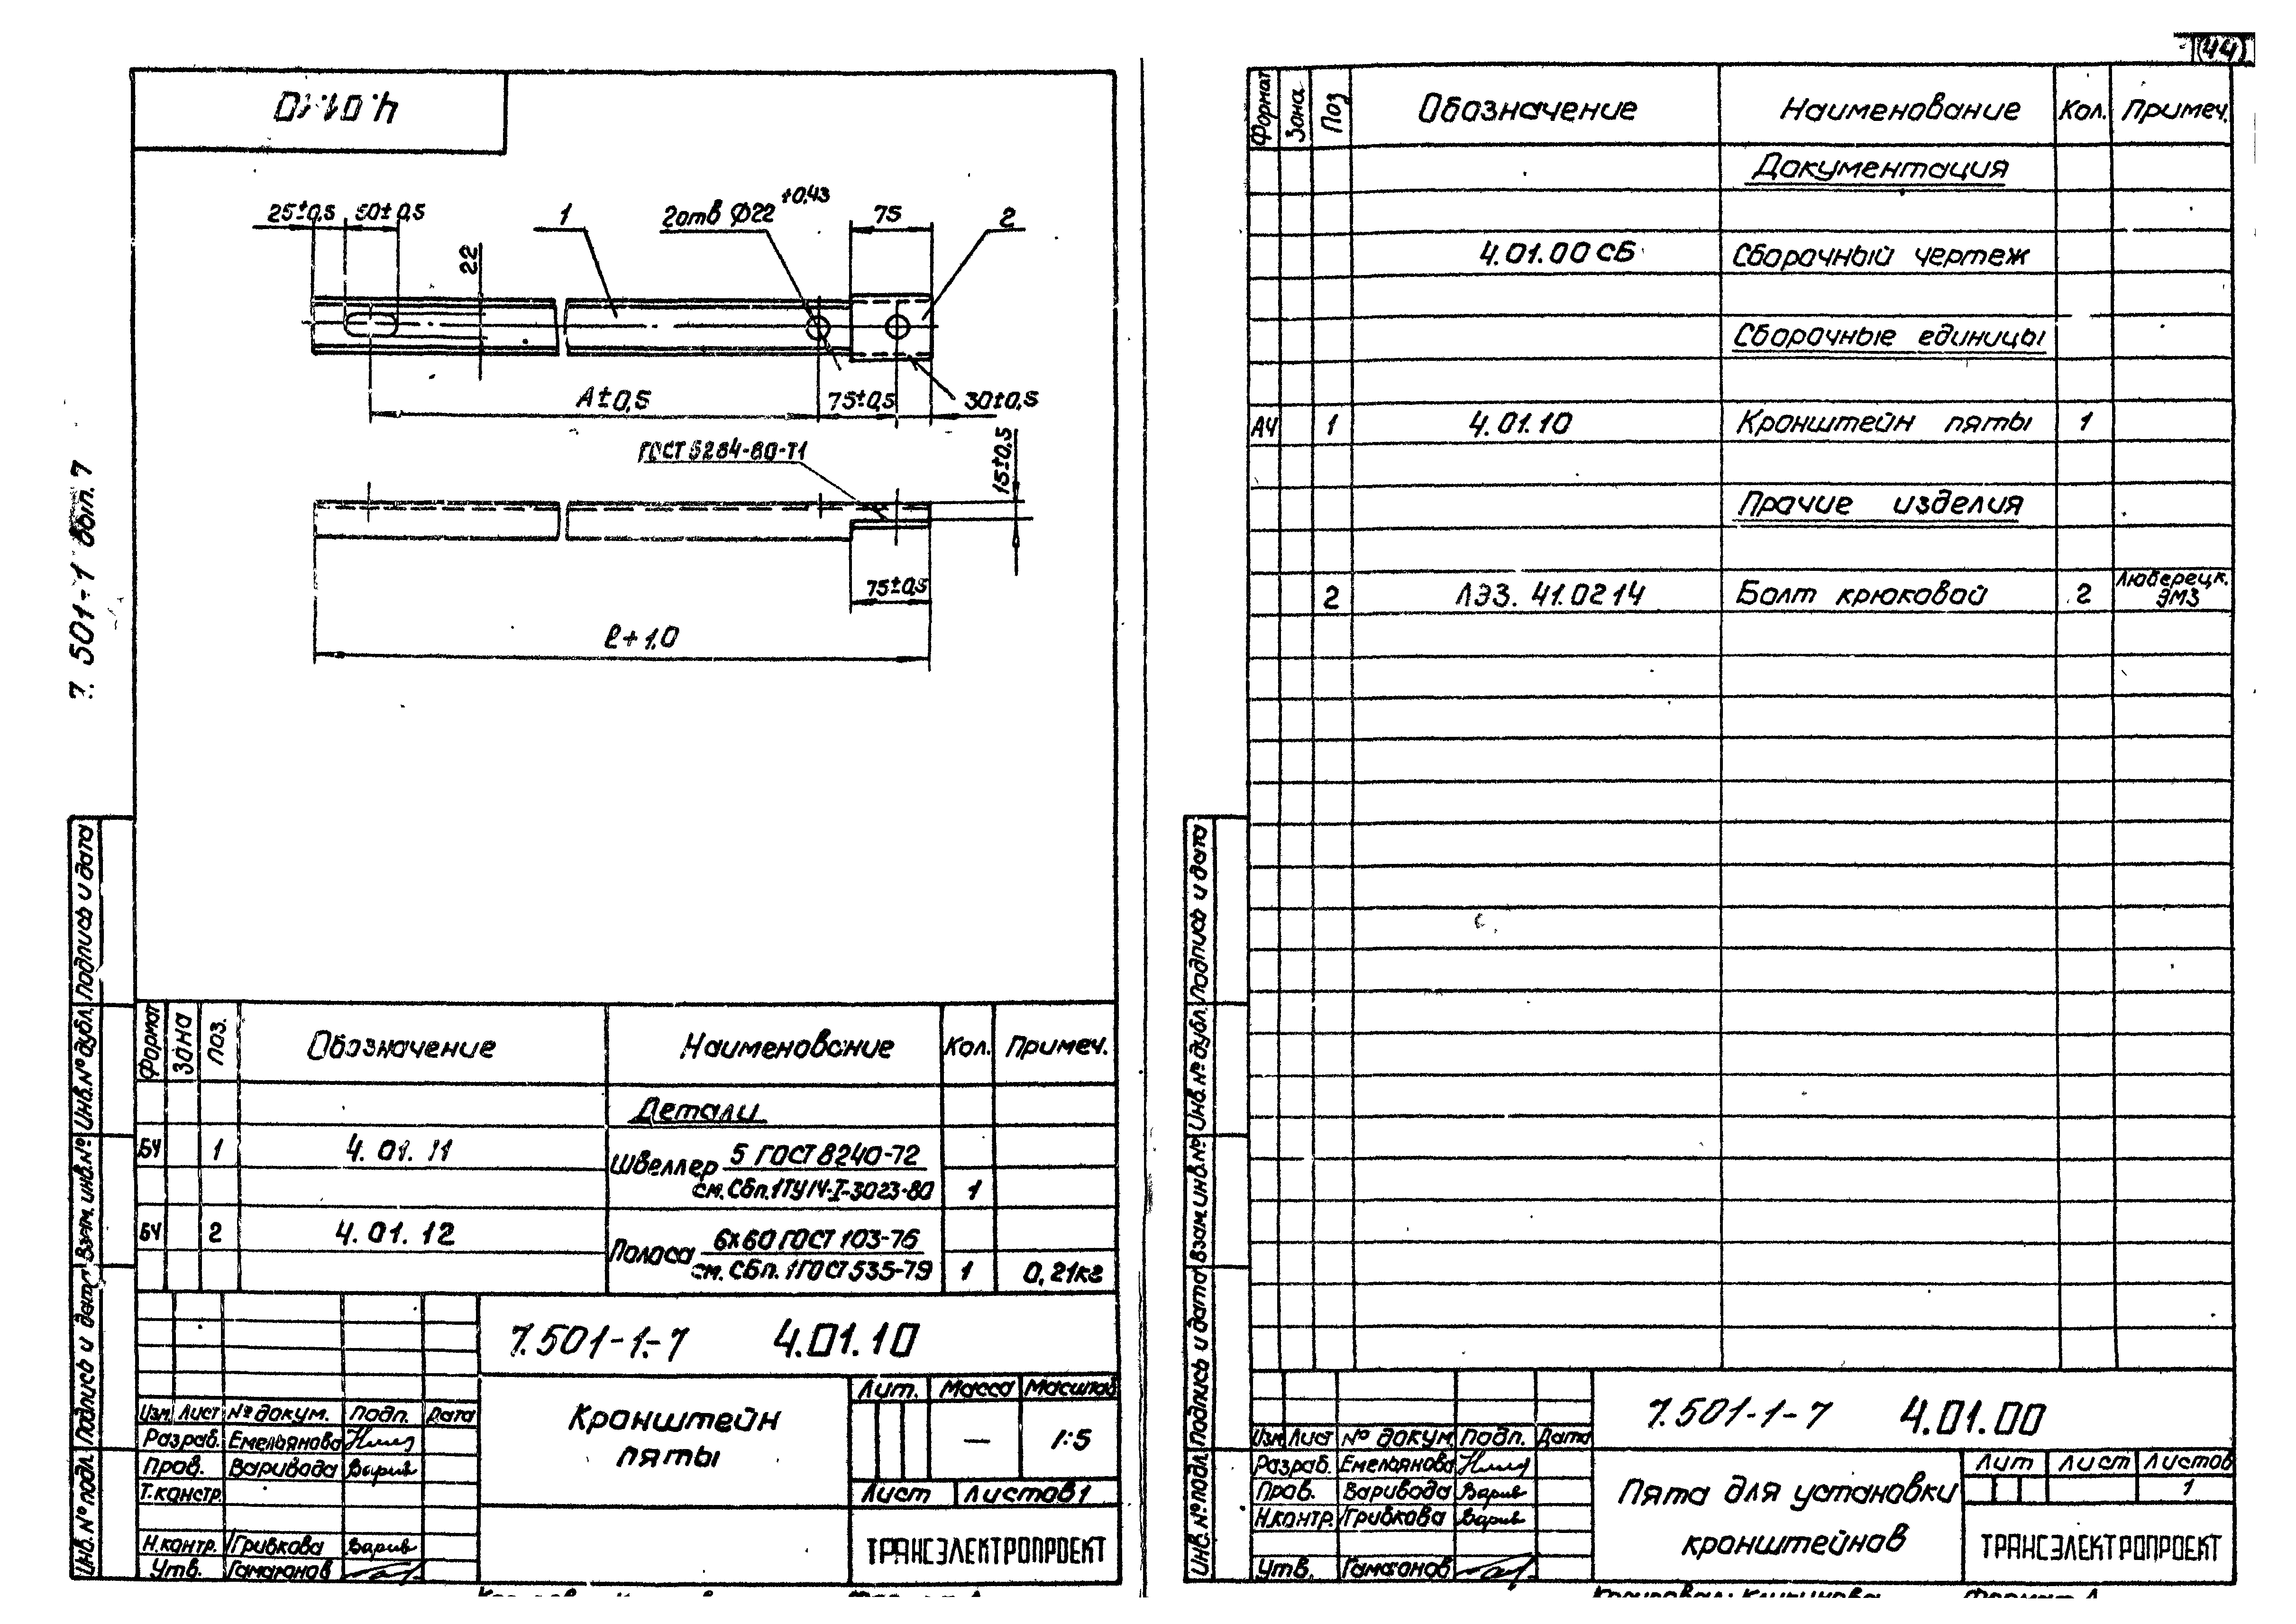 4.01.10
25±0,5 50±0,5
22
1
2отв Ø22 +0,43
75
2
А±0,5
75±0,5
30±0,5
ГОСТ 5264-80-Т1
15±0,5
75±0,5
ℓ+1,0
7. 501-1 вып. 7
Формат Зона Поз. Обозначение Наименование Кол. Примеч.
Детали
БЧ 1 4.01.11 Швеллер 5 ГОСТ 8240-72
см.Сбп.1ТУ14-I-3023-80 1
БЧ 2 4.01.12 Полоса 6х60 ГОСТ 103-76
см.Сбп.1ГОСТ535-79 1 0,21кг
7.501-1-7 4.01.10
Кронштейн
пяты
Лит. Масса Масштаб
— 1:5
Лист Листов 1
ТРАНСЭЛЕКТРОПРОЕКТ
Изм Лист № докум. Подп. Дата
Разраб. Емельянова
Пров. Варивода Варив
Т.контр.
Н.контр. Грибкова Варив
Утв. Гамаонов
Инв.№подл. Подпись и дата Взам.инв.№ Инв.№дубл. Подпись и дата
(44)
Формат Зона Поз Обозначение Наименование Кол. Примеч.
Документация
4.01.00 СБ Сборочный чертеж
Сборочные единицы
А4 1 4.01.10 Кронштейн пяты 1
Прочие изделия
2 ЛЭЗ. 41.0214 Болт крюковой 2 Люберецк. ЭМЗ
7.501-1-7 4.01.00
Пята для установки
кронштейнов
Лит Лист Листов
1
ТРАНСЭЛЕКТРОПРОЕКТ
Изм Лист № докум. Подп. Дата
Разраб. Емельянова
Пров. Варивода Варив
Н.контр. Грибкова Варив
Утв. Гамаонов
Инв.№подл. Подпись и дата Взам.инв.№ Инв.№дубл. Подпись и дата